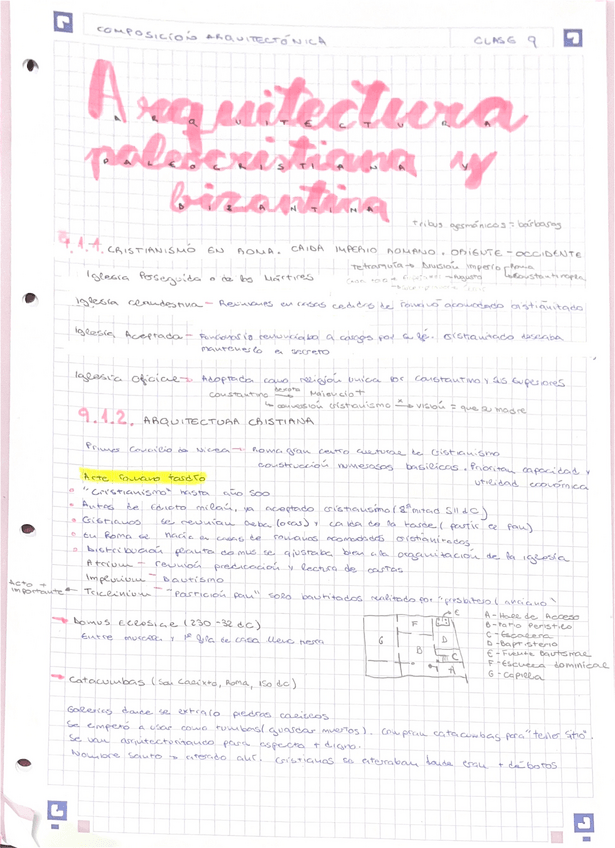 COMPOSICIÓN ARQUITECTÓNICA
CLASE 9
Arquitectura
ARQUITECTURA
paleocristiana y
PALEOCRISTIANA Y
bizantina
BIZANTINA
tribus germánicas = bárbaros
9.1.1. CRISTIANISMO EN ROMA. CAIDA IMPERIO ROMANO. ORIENTE - OCCIDENTE
Tetrarquía → División imperio Roma
Iglesia Perseguida o de los Mártires
Constantinopla
Iglesia clandestina - Reuniones en casas cedidas de romano acomodado cristianizado
Iglesia Aceptada - Funcionario renunciaba a cargos por su fé. Cristianizado deseaba
mantenerlo en secreto
Iglesia Oficial → Adoptada como religión única por Constantino y sus superiores
Constantino → Majencio +
↳ conversión cristianismo → visión = que su madre
9.1.2. ARQUITECTURA CRISTIANA
Primer Concilio de Nicea → Roma gran centro cultural de Cristianismo
construcción numerosas basílicas. Prioritan capacidad y
utilidad económica
Arte romano tardío
"Cristianismo" hasta año 500
Antes de Edicto milán, ya aceptado cristianismo (2ª mitad S II d.C)
Cristianos se reunían y cena de la tarde (partir el pan)
En Roma se hacía en casas de romanos acomodados cristianizados
Distribución planta domus se ajustaba bien a la organización de la iglesia
Atrium - reunión predicación y lectura de cartas
Impluvium - bautismo
Acto +
importante ← Triclinium - "Partición pan" solo bautizados realizado por "presbítero (anciano)"
→ Domus Ecclesiae (230-32 d.C)
Entre muralla y 1ª fila de casa
G F E D B C A
A - Hall de Acceso
B - Patio Peristilo
C - Escalera
D - Baptisterio
E - Fuente Bautismal
F - Escuela dominical
G - Capilla
→ Catacumbas (San Calixto, Roma, 150 d.C)
Galerías donde se extraía piedras calizas
Se empezó a usar como tumbas (guardar muertos). Compran catacumbas para "tener sitio".
Se van arquitecturizando para aspecto + digno.
Nombre santo → aterrado ahí. Cristianos se aterraban donde eran + debotos